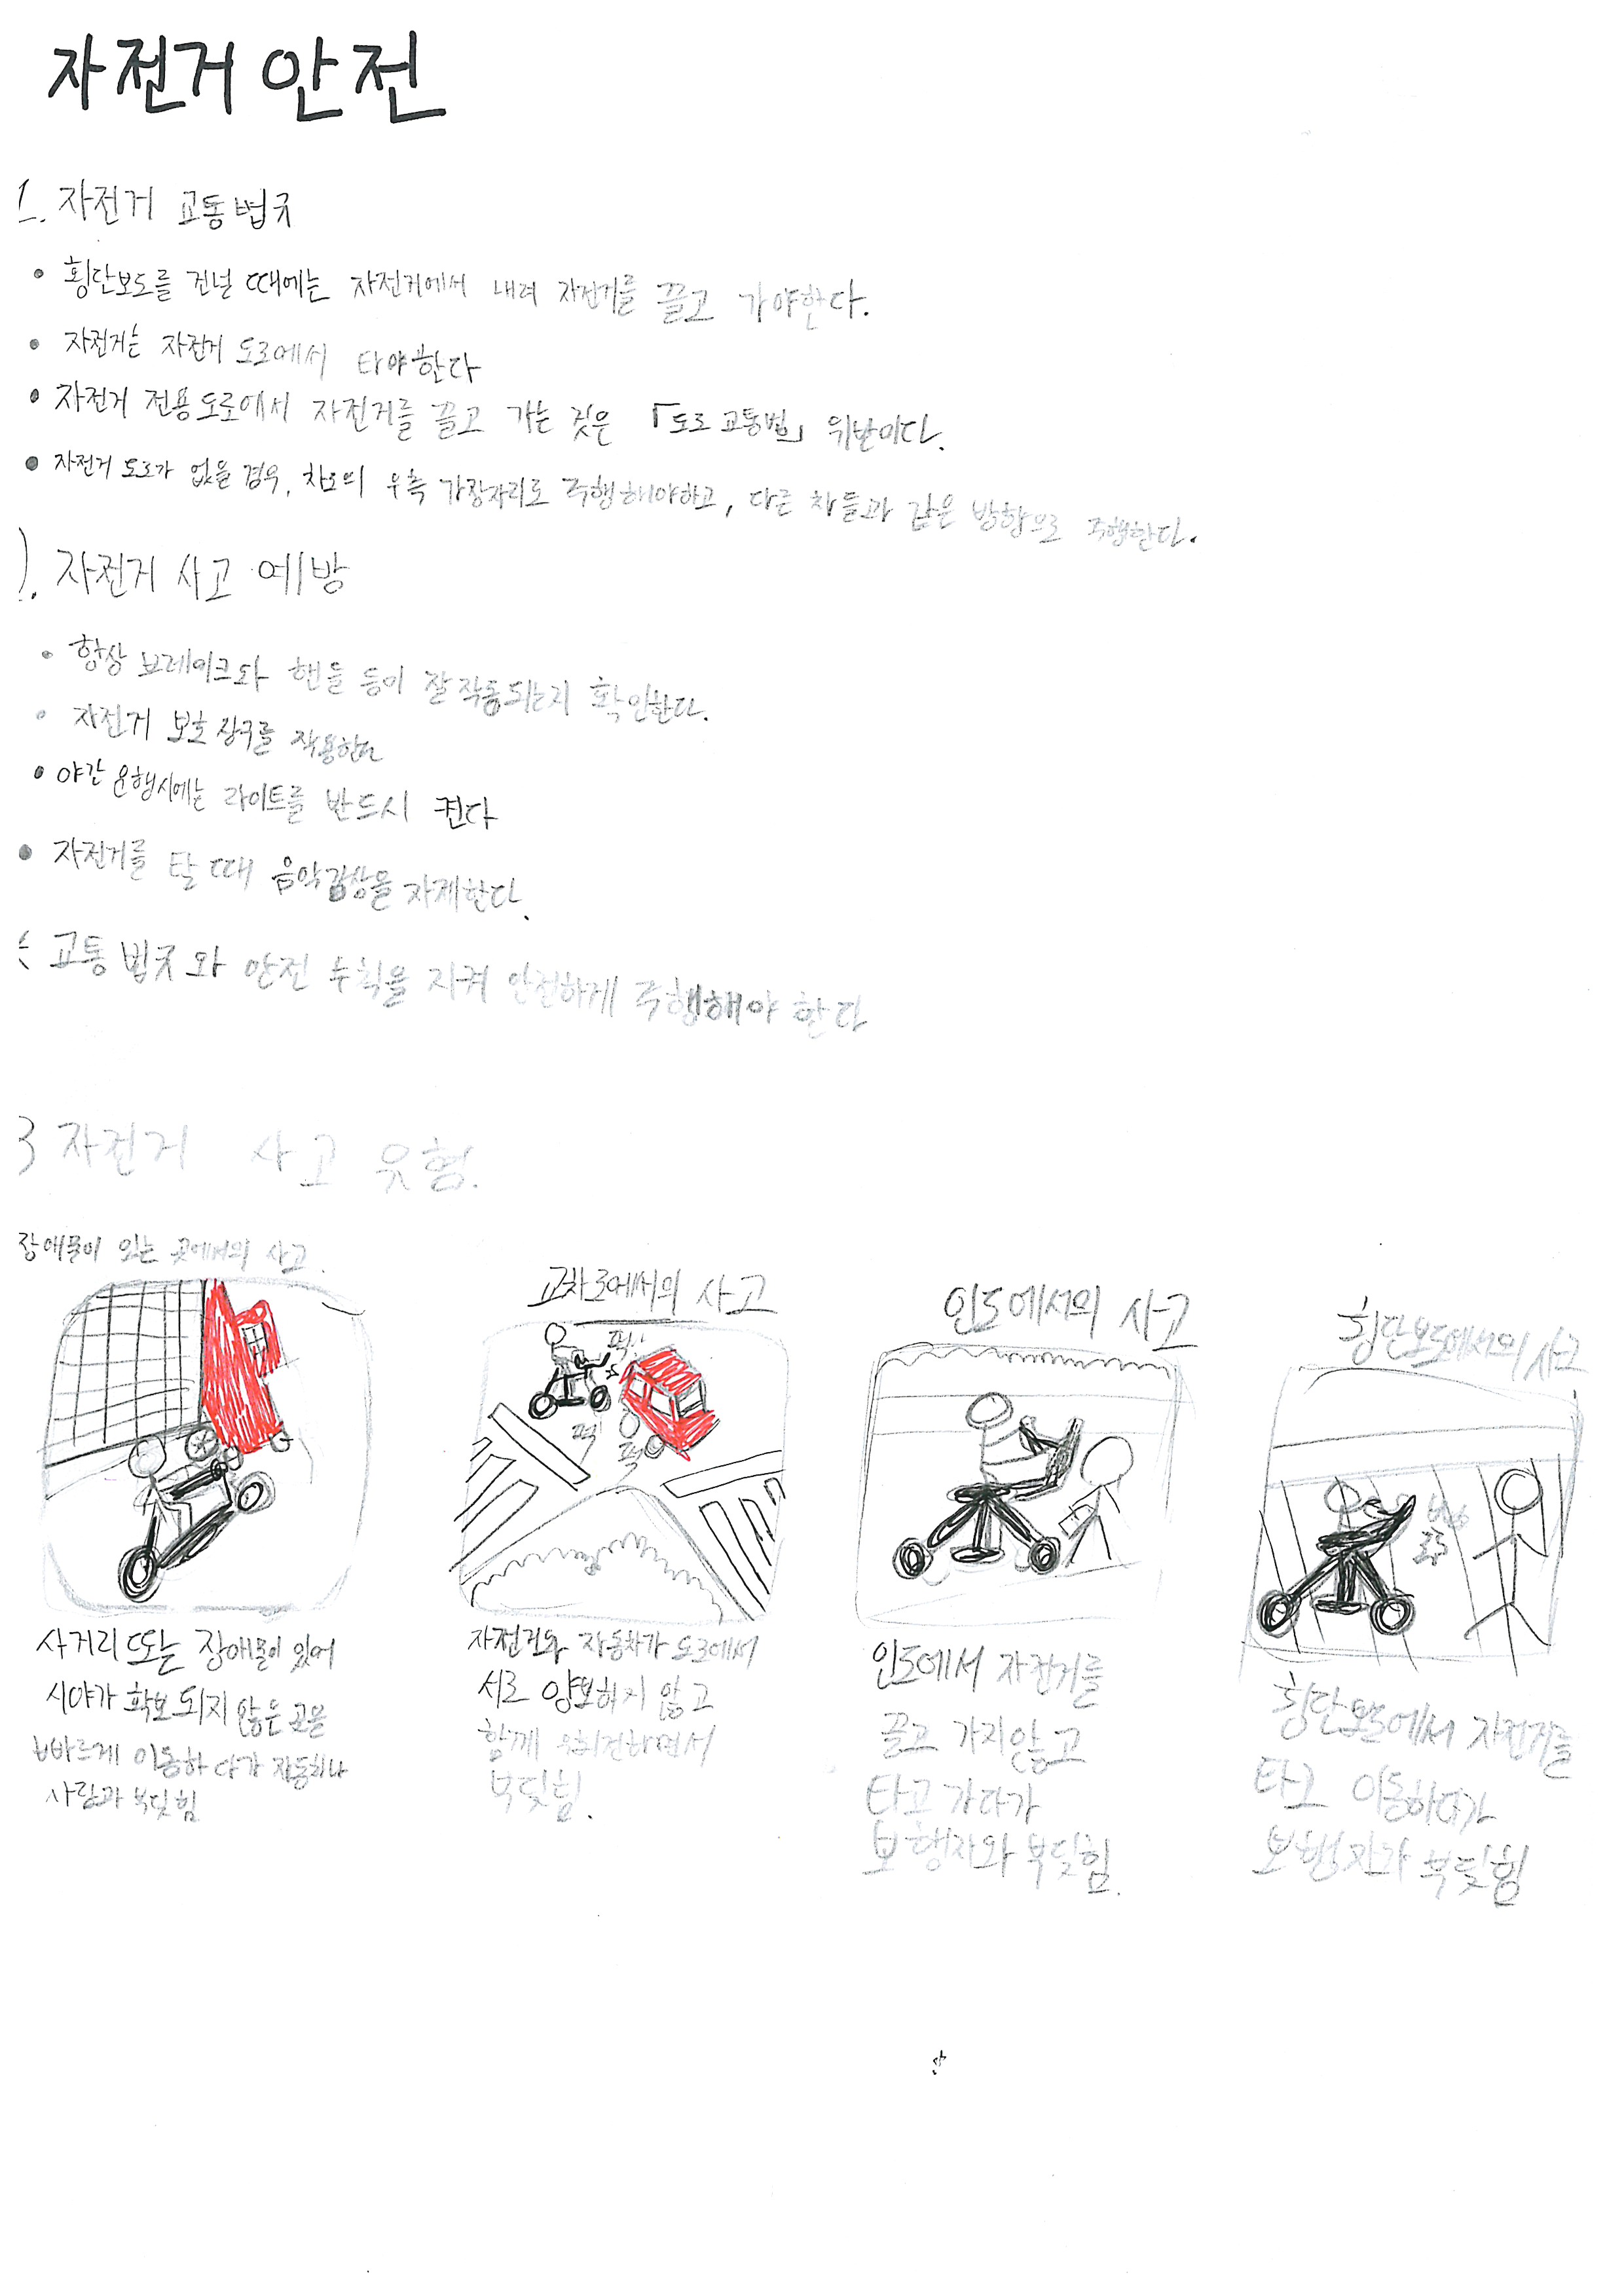 자전거 안전
1. 자전거 교통법규
• 횡단보도를 건널 때에는 자전거에서 내려 자전거를 끌고 가야한다.
• 자전거는 자전거 도로에서 타야한다
• 자전거 전용도로에서 자전거를 끌고 가는 것은 「도로교통법」 위반이다.
• 자전거 도로가 없을 경우, 차도의 우측 가장자리로 주행해야하고, 다른 차들과 같은 방향으로 주행한다.
. 자전거 사고 예방
• 항상 브레이크와 핸들 등이 잘 작동되는지 확인한다.
• 자전거 보호 장구를 착용한다
• 야간 운행시에는 라이트를 반드시 켠다
• 자전거를 탈 때 음악감상을 자제한다.
교통법규와 안전 수칙을 지켜 안전하게 주행해야 한다
3 자전거 사고 유형.
장애물이 있는 곳에서의 사고.
사거리 또는 장애물이 있어
시야가 확보되지 않은 곳을
빠르게 이동하다가 자동차나
사람과 부딪힘
교차로에서의 사고
퍽!
퍽
퍽
자전거와 자동차가 도로에서
서로 양보하지 않고
함께 우회전하면서
부딪힘.
인도에서의 사고
인도에서 자전거를
끌고 가지않고
타고 가다가
보행자와 부딪힘.
횡단보도에서의 사고
횡단보도에서 자전거를
타고 이동하다가
보행자가 부딪힘